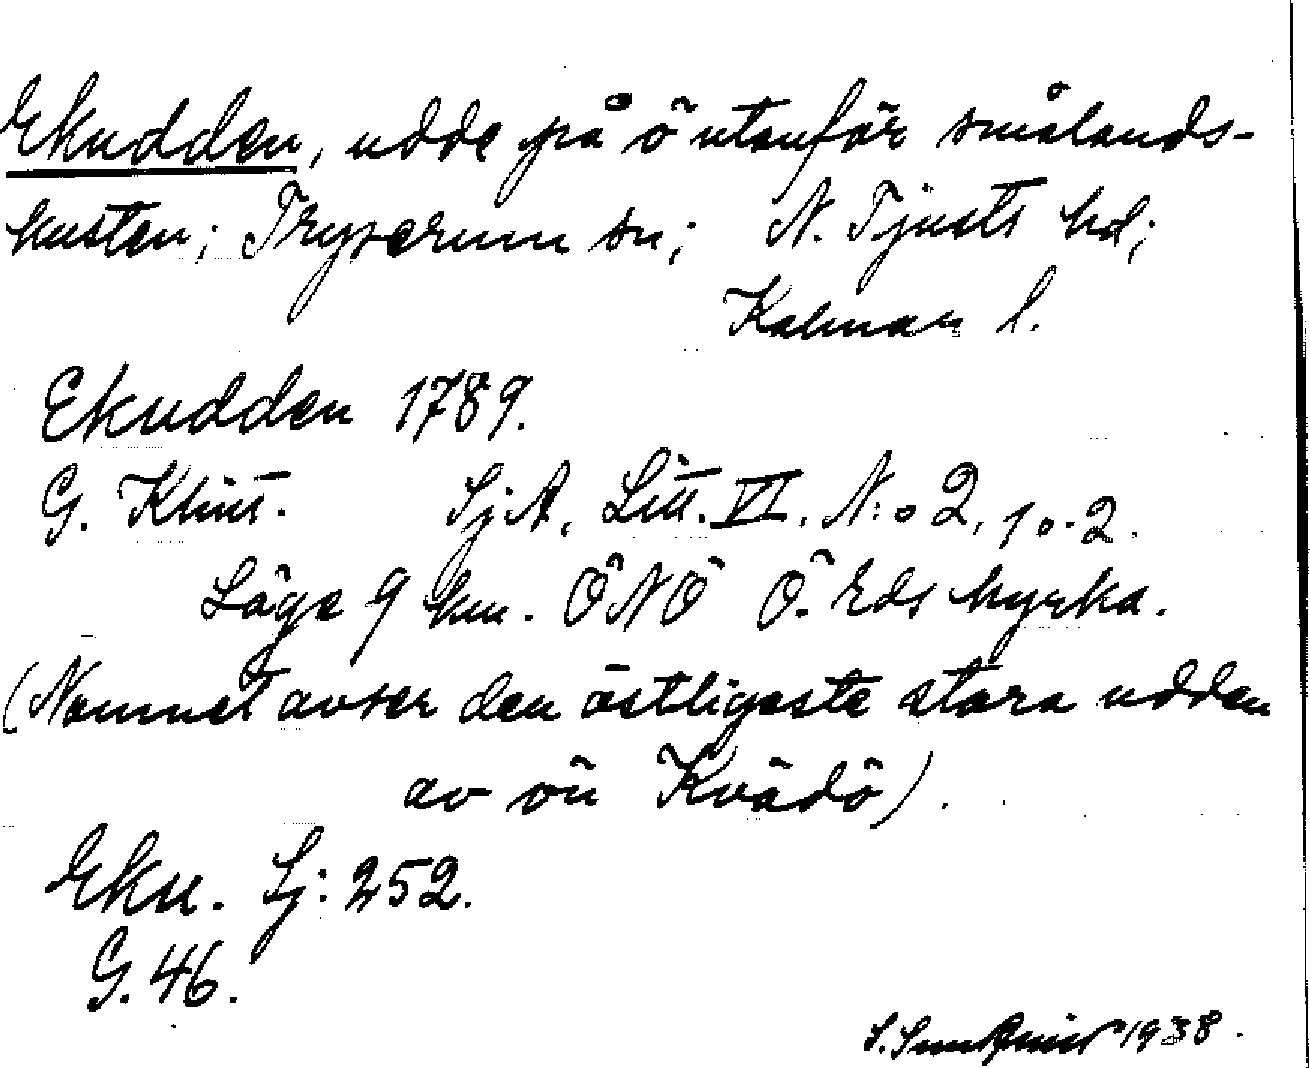 Ekudden, udde på ö utanför smålands-
kusten; Tryserum sn; N. Tjusts hd;
Kalmar l.
Ekudden 1789.
G. Klint. SjA, Litt. VI. N:o 2, 1 o. 2.
Läge 9 km. ÖNÖ Ö. Eds kyrka.
(Namnet avser den östligaste stora udden
av ön Kvädö).
Eku. Sj: 252.
G. 46.
S. 1938.